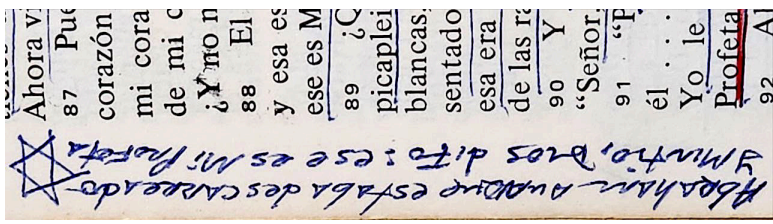 Ahora v
87 Pue
corazón
mi cora
de mi c
¿Y no n
88 El
y esa es
ese es M
89 ¿Q
picaplei
blancas,
sentado
esa era
de las ra
90 Y
“Señor,
91 “P
él . . .
Yo le
Profeta
92 Al
Abraham aunque estaba descarreado
y Mintio, Dios dijo: ese es Mi Profeta